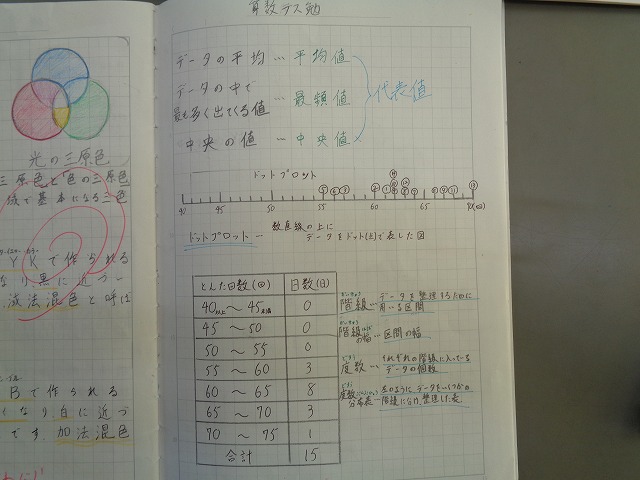 光の三原色
三原色と色の三原色
成で基本になる三色
YKで作られる
なり黒に近づ
減法混色と呼ば
Bで作られる
くなり白に近づ
です。加法混色
算数テス勉
データの平均…平均値
データの中で
最も多く出てくる値…最頻値
代表値
中央の値…中央値
ドットプロット
40 45 50 55 60 65 70(回)
ドットプロット―数直線の上に
データをドット(点)で表した図
とんだ回数(回) 日数(日)
40以上～45未満 0
45～50 0
50～55 0
55～60 3
60～65 8
65～70 3
70～75 1
合計 15
階級…データを整理するために
用いる区間
階級の幅…区間の幅
度数…それぞれの階級に入っている
データの個数
度数分布表―左のように、データをいくつかの
階級に分け、整理した表